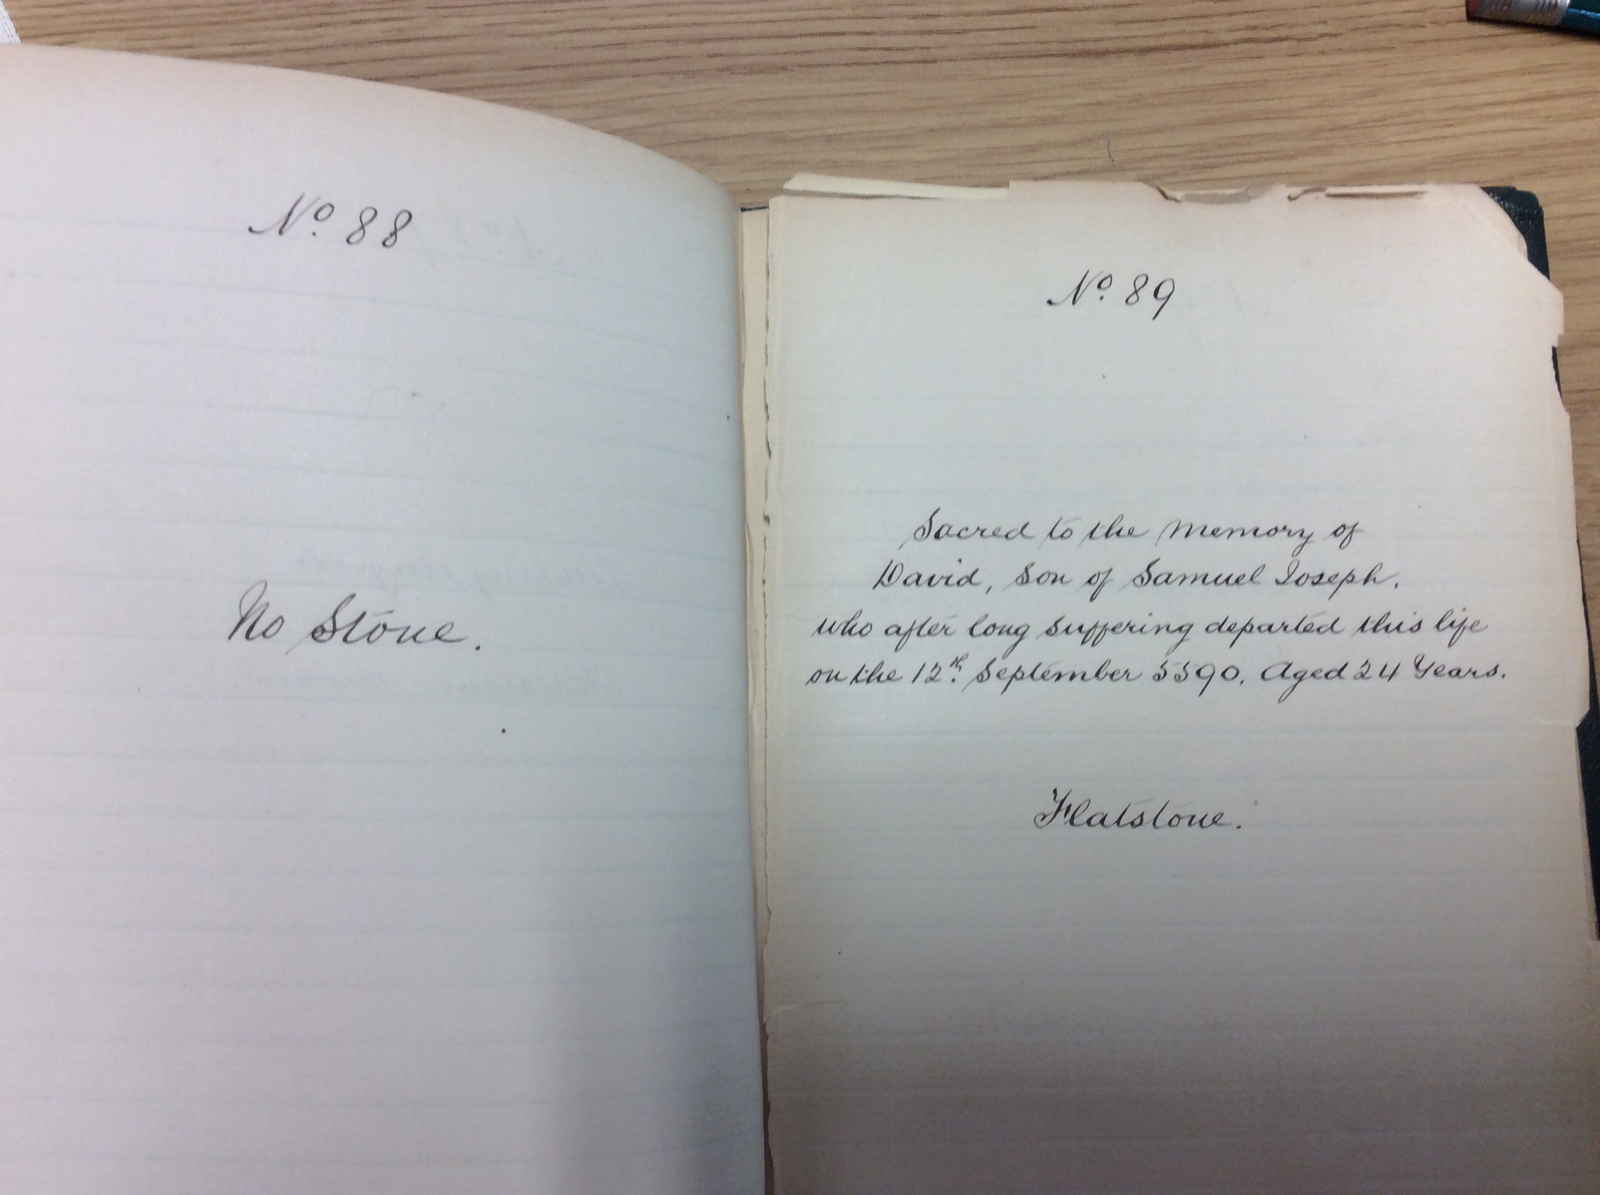 No. 88
No Stone.
No. 89
Sacred to the Memory of
David, Son of Samuel Joseph.
who after long suffering departed this life
on the 12th. September 5590. Aged 24 Years.
Flatstone.